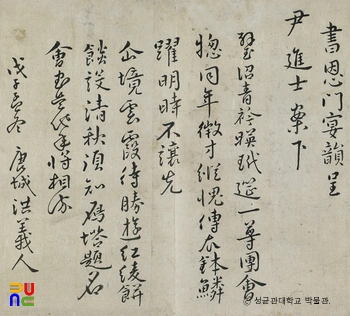 書恩門宴韻呈
尹進士案下
璧沼青衿暎玳筵一尊團會
摠同年微才縱愧傳衣鉢鱗
躍明時不讓先
仙境雲霞待勝遊紅綾餅
餤設清秋須知雁塔題名
會盡是他年將相流
戊子孟冬 唐城洪義人
© 성균관대학교 박물관.